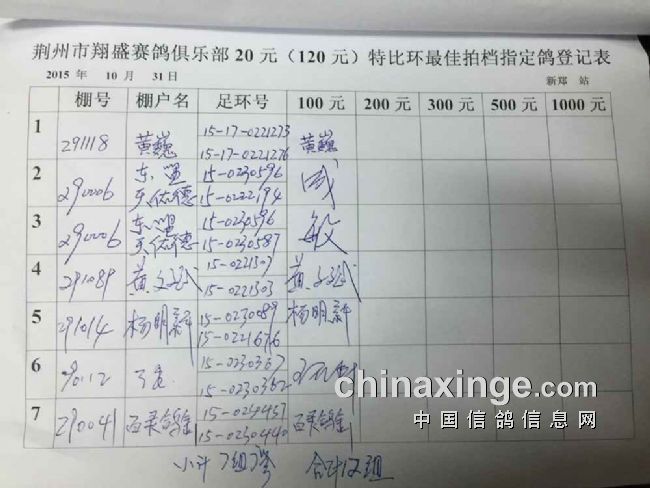 荆州市翔盛赛鸽俱乐部20元（120元）特比环最佳拍档指定鸽登记表
2015 年 10 月 31日 新郑 站
棚号 棚户名 足环号 100元 200 元 300 元 500 元 1000 元
1 291118 黄巍 15-17-0221273 黄巍
15-17-0221276
2 290006 东盟 15-0230596
佑德 15-0222194
3 290006 东盟 15-0230596 敏
佑德 15-0230587
4 291089 黄文 15-0221307 黄文
15-0221303
5 291014 杨明新 15-0230089 杨明新
15-0221676
6 15-0230367
15-0230362
7 290041 百乐鸽舍 百乐鸽舍
15-0230440
小计7组 合计12组
chinaxinge.com
中国信鸽信息网